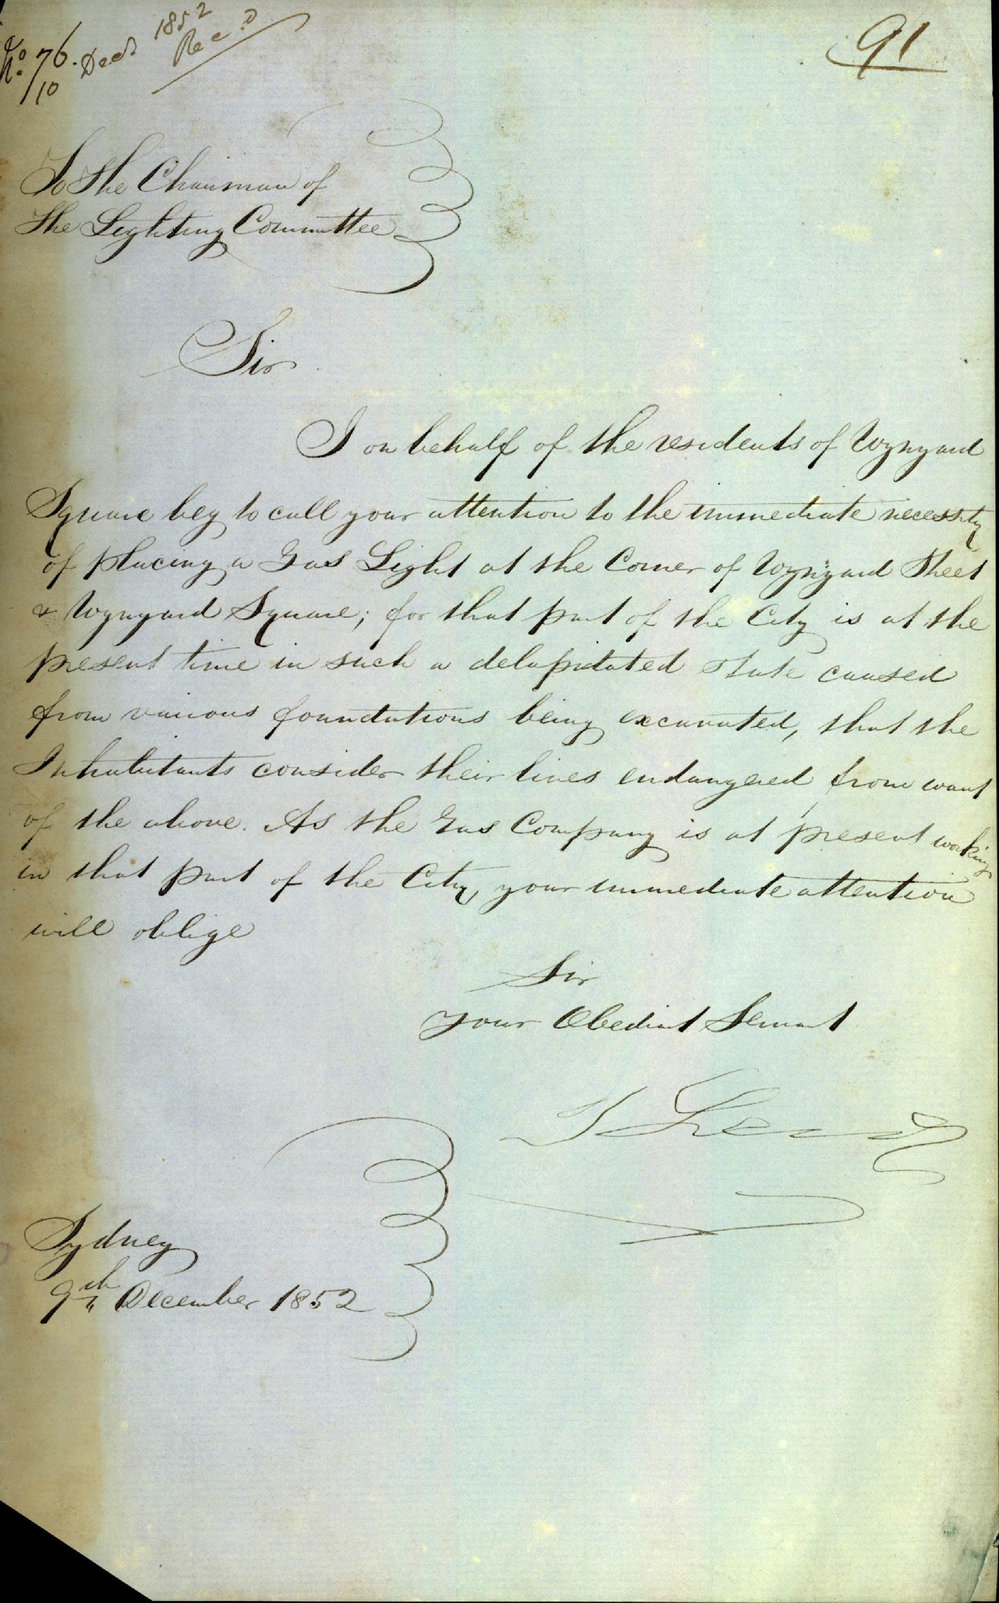 No. 76. Decr. 1852
10 Recd.
91
To the Chairman of
the Lighting Committee
Sir
I on behalf of the residents of Wynyard
Square beg to call your attention to the immediate necessity
of placing a Gas Light at the Corner of Wynyard Street
& Wynyard Square; for that part of the City is at the
present time in such a delapitated state caused
from various foundations being excavated, that the
Inhabitants consider their lives endangered from want
of the above. As the Gas Company is at present working
in that part of the City, your immediate attention
will oblige
Sir
your Obedient Servant
Sydney
9th December 1852